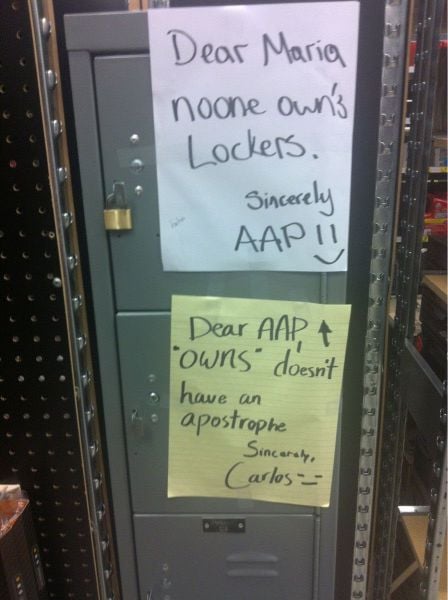 Dear Maria
noone own's
Lockers.
Sincerely
AAP!!
Dear AAP,
"owns" doesn't
have an
apostrophe
Sincerely,
Carlos -_-